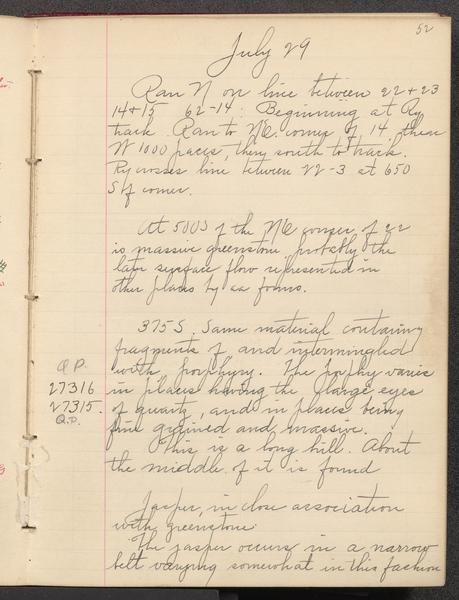 52
July 29
Ran N on line between 22 + 23
14 + 15 62-14. Beginning at Ry
track. Ran to NE. corner of 14, then
W 1000 paces, then south to track.
Ry crosses line between 22-3 at 650
S of corner.
At 500 S of the NE corner of 22
is massive greenstone probably the
late surface flow represented in
other places by forms.
375 S. Same material containing
fragments of and intermingled
with porphyry. The porphy varies
Q P. 27316 in places having the large eyes
27315. of quartz, and in places being
Q.P. fine grained and massive.
This is a long hill. About
the middle of it is found
Jasper, in close association
with greenstone.
The jasper occurs in a narrow
belt varying somewhat in this fashion